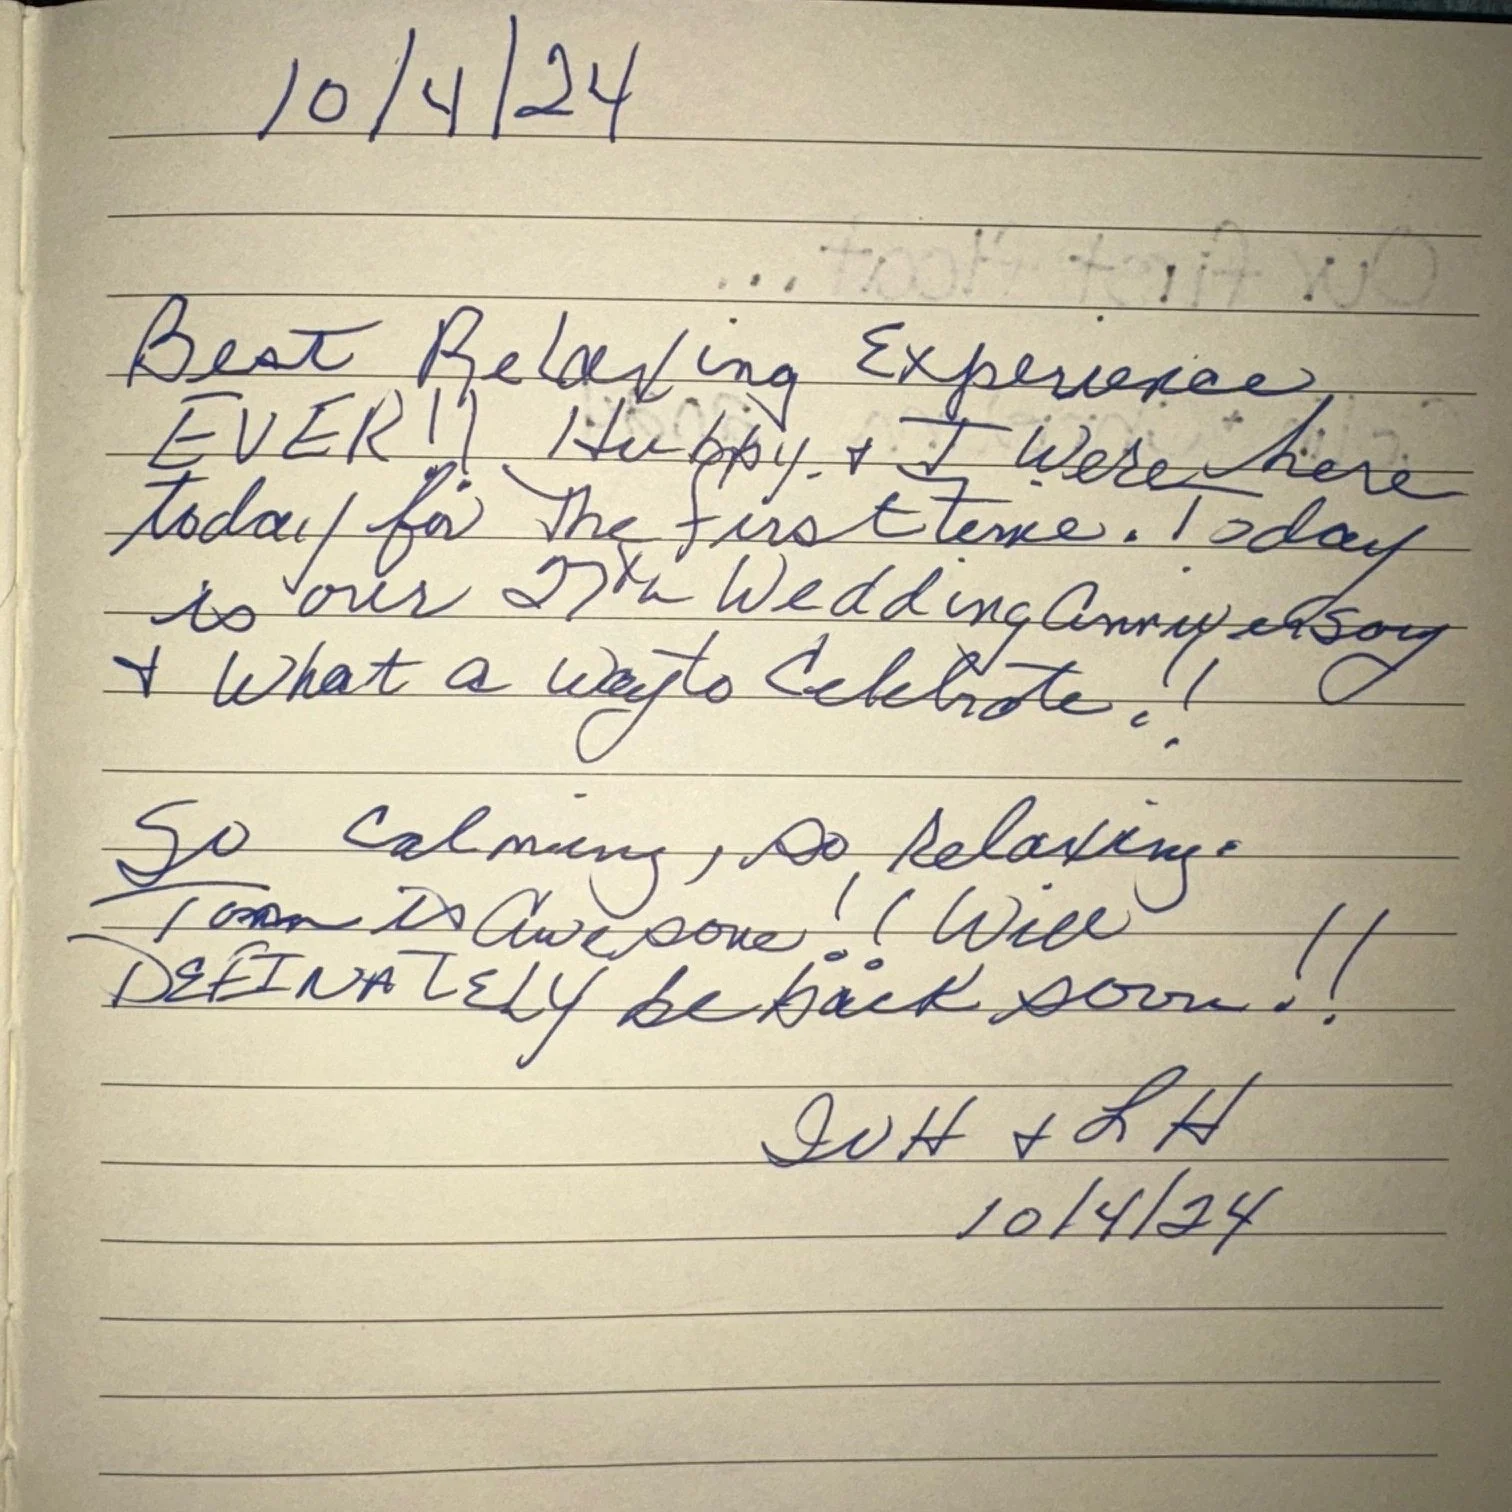 10/4/24
Our first float ...
Best Relaxing Experience
EVER!! Hubby & I Were here
today for The first time. Today
is our 27th Wedding Anniversary
& What a way to Celebrate!!
So Calming, so Relaxing.
is Awesome!! Will
DEFINATELY be back soon!!
JVH & LH
10/4/24